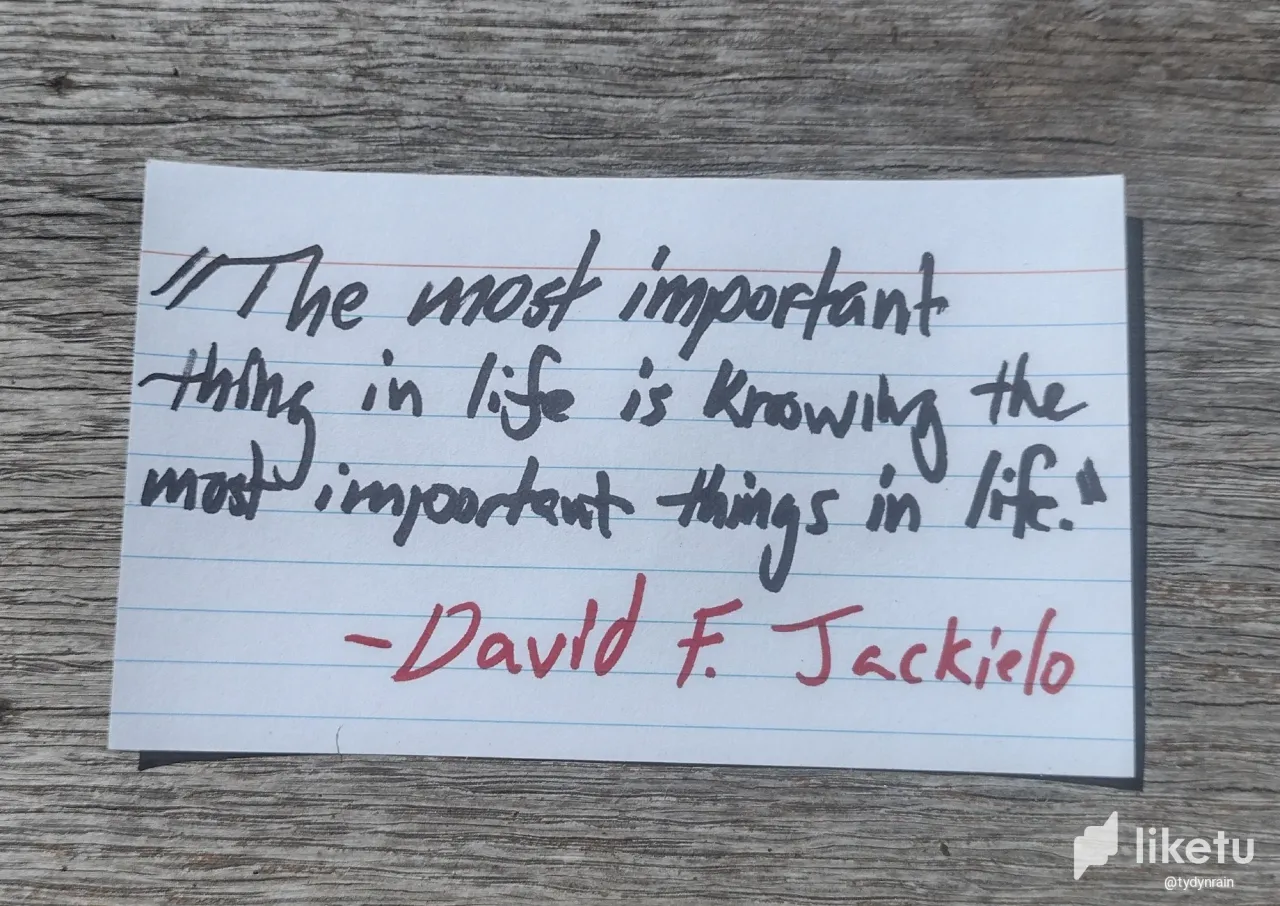 "The most important
thing in life is knowing the
most important things in life."
-David F. Jackielo
liketu
@tydynrain